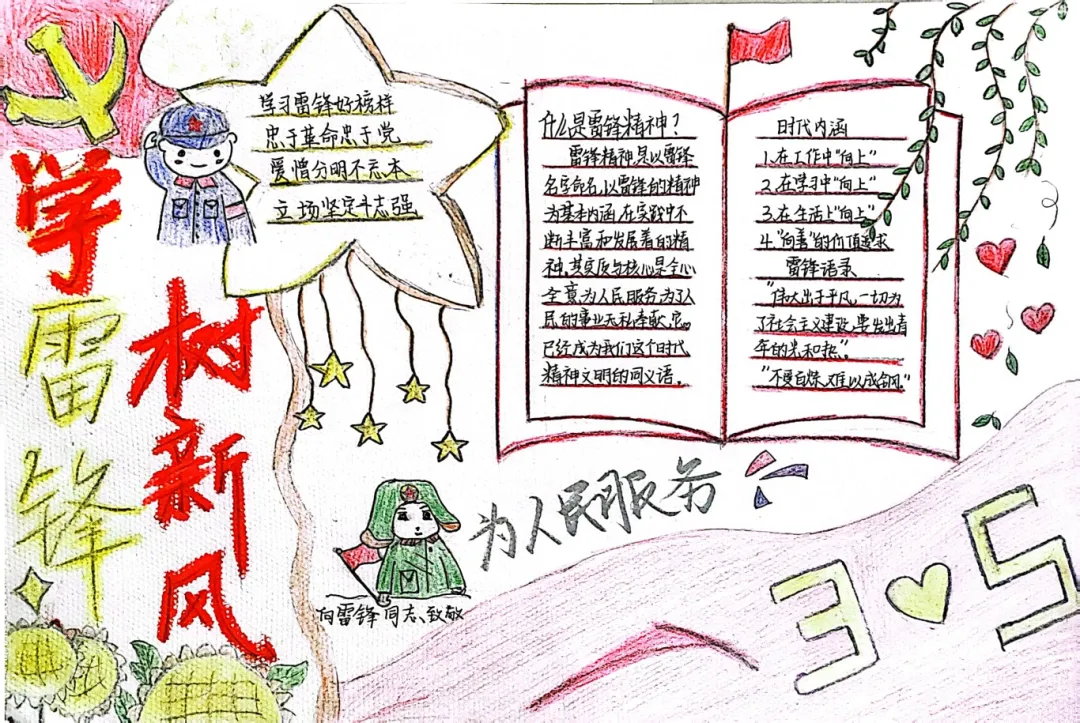 学雷锋
树新风
学习雷锋好榜样
忠于革命忠于党
爱憎分明不忘本
立场坚定斗志强
什么是雷锋精神?
雷锋精神是以雷锋
名字命名,以雷锋的精神
为基本内涵,在实践中不
断丰富和发展着的精
神,其实质与核心是全心
全意为人民服务,为了人
民的事业无私奉献,它。
已经成为我们这个时代
精神文明的同义语。
时代内涵
1.在工作中“向上”
2.在学习中“向上”
3.在生活上“向上”
4.“向善”的价值追求
雷锋语录
“伟大出于平凡,一切为
了社会主义建设,要发出青
年的光和热”。
“不要自炼,难以成钢。”
为人民服务
向雷锋同志致敬
3 5